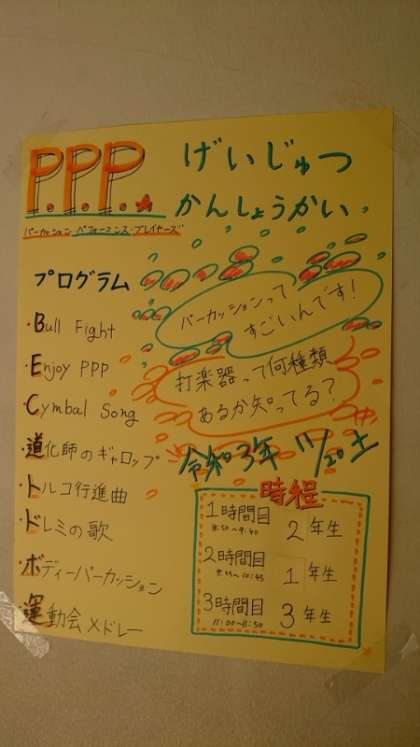 P.P.P.★
パーカッション パフォーマンス・プレイヤーズ
げいじゅつ
かんしょうかい。
パーカッションって
すごいんです!
打楽器って何種類
あるか知ってる?
令和3年 11/20 土
プログラム
・Bull Fight
・Enjoy PPP
・Cymbal Song
・道化師のギャロップ
・トルコ行進曲
・ドレミの歌
・ボディーパーカッション
・運動会メドレー
時程
1時間目 2年生
8:50〜9:40
2時間目 1年生
9:55〜10:45
3時間目 3年生
11:00〜11:50